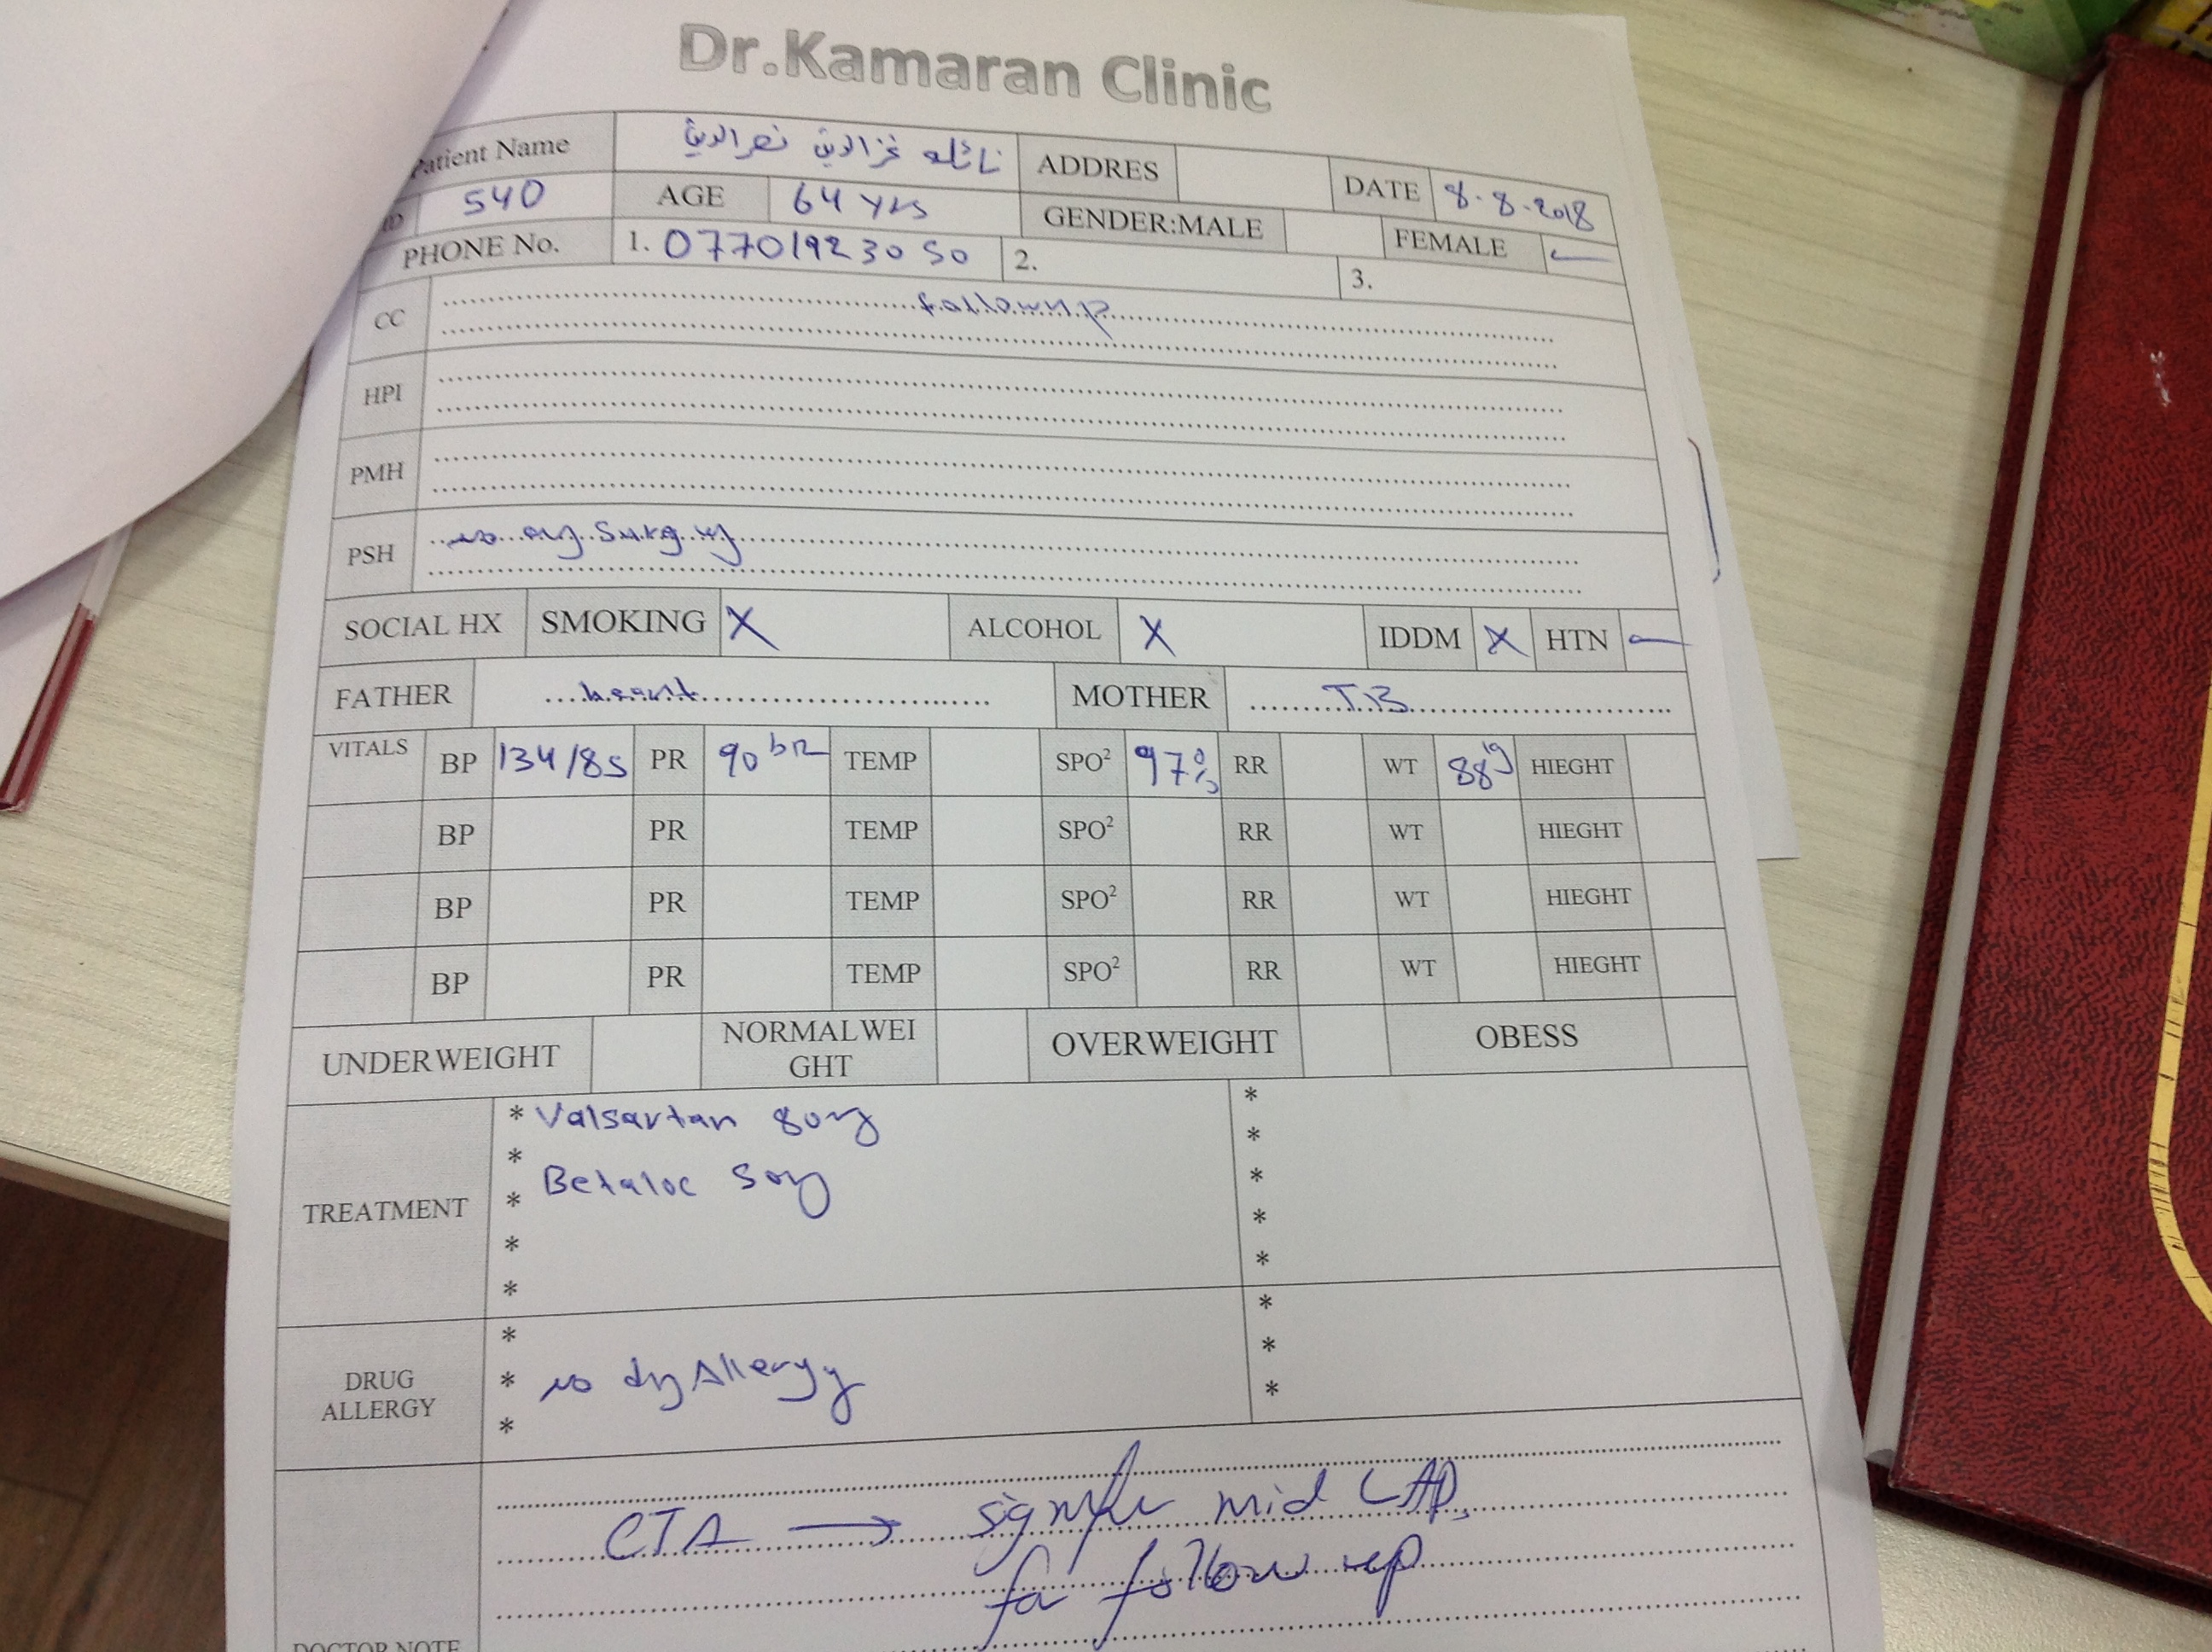 Dr.Kamaran Clinic
Patient Name نائله عزالدين نصرالدين ADDRES DATE 8.8.2018
ID 540 AGE 64 yrs GENDER:MALE FEMALE
PHONE No. 1. 07701923050 2. 3.
CC follow up
HPI
PMH
PSH no any surgery
SOCIAL HX SMOKING X ALCOHOL X IDDM X HTN
FATHER heart MOTHER T.B
VITALS BP 134/85 PR 90 TEMP SPO² 97% RR WT 88 HIEGHT
BP PR TEMP SPO² RR WT HIEGHT
BP PR TEMP SPO² RR WT HIEGHT
BP PR TEMP SPO² RR WT HIEGHT
UNDERWEIGHT NORMALWEI
GHT OVERWEIGHT OBESS
TREATMENT
* Valsartan 80mg *
* *
* Betaloc 50mg *
* *
* *
DRUG
ALLERGY
* *
* no drug Allergy *
* *
CTA → mid LAD,
for follow up
DOCTOR NOTE